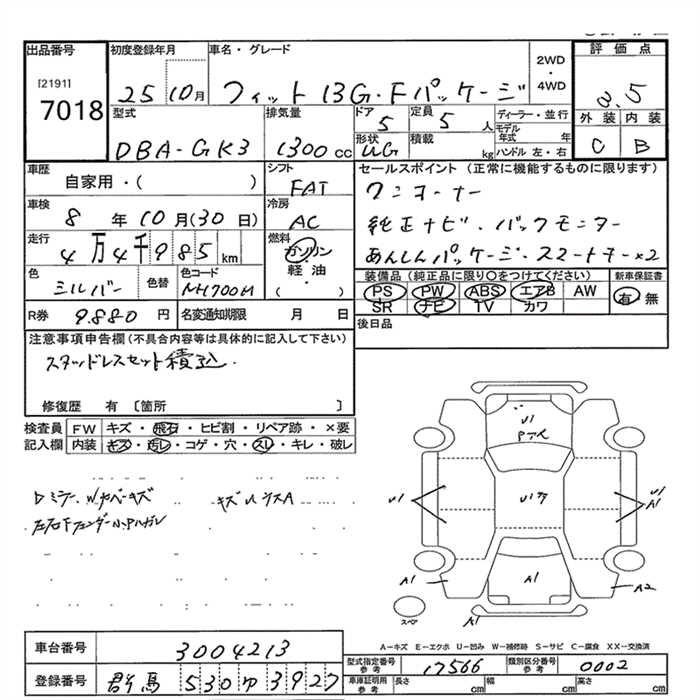 出品番号
[2191]
7018
初度登録年月
25 10月
車名・グレード
フィット 13G・Fパッケージ
2WD
・
4WD
評価点
3.5
外装 内装
C B
型式
DBA-GK3
排気量
1300 cc
ドア
5
定員
5 人
形状
UG
積載
kg
ディーラー・並行
モデル年式 年
ハンドル 左・右
車歴
自家用・( )
シフト
FAT
車検
8 年 10 月 (30 日)
冷房
AC
走行
4万4千985 km
燃料
ガソリン
・
軽・油
( )
色
シルバー
色替
色コード
NH700M
R券 9880 円
名変通知期限 月 日
セールスポイント (正常に機能するものに限ります)
ワンオーナー
純正ナビ・バックモニター
あんしんパッケージ・スマートキー×2
装備品(純正品に限り〇をつけてください)
新車保証書
PS PW ABS エアB AW
SR ナビ TV カワ
有 無
後日品
注意事項申告欄(不具合内容等は具体的に記入して下さい)
スタッドレスセット積込.
修復歴 有 〔箇所 〕
検査員記入欄
FW キズ・飛石・ヒビ割・リペア跡・×要
内装 キズ・汚レ・コゲ・穴・スレ・キレ・破レ
Dミラー、Wカバーキズ
キズUウスA
左右Fフェンダー小アルガレ
U1
U1
U1
A1
A1
A1
A2
A1
スペア
A－キズ E－エクボ U－凹み W－補修跡 S－サビ C－腐食 XX－交換済
車台番号 3004213
登録番号 群馬 530 ゆ 3927
型式指定番号 参考 17566
類別区分番号 参考 0002
車庫証明用 参考 長さ cm 幅 cm 高さ cm